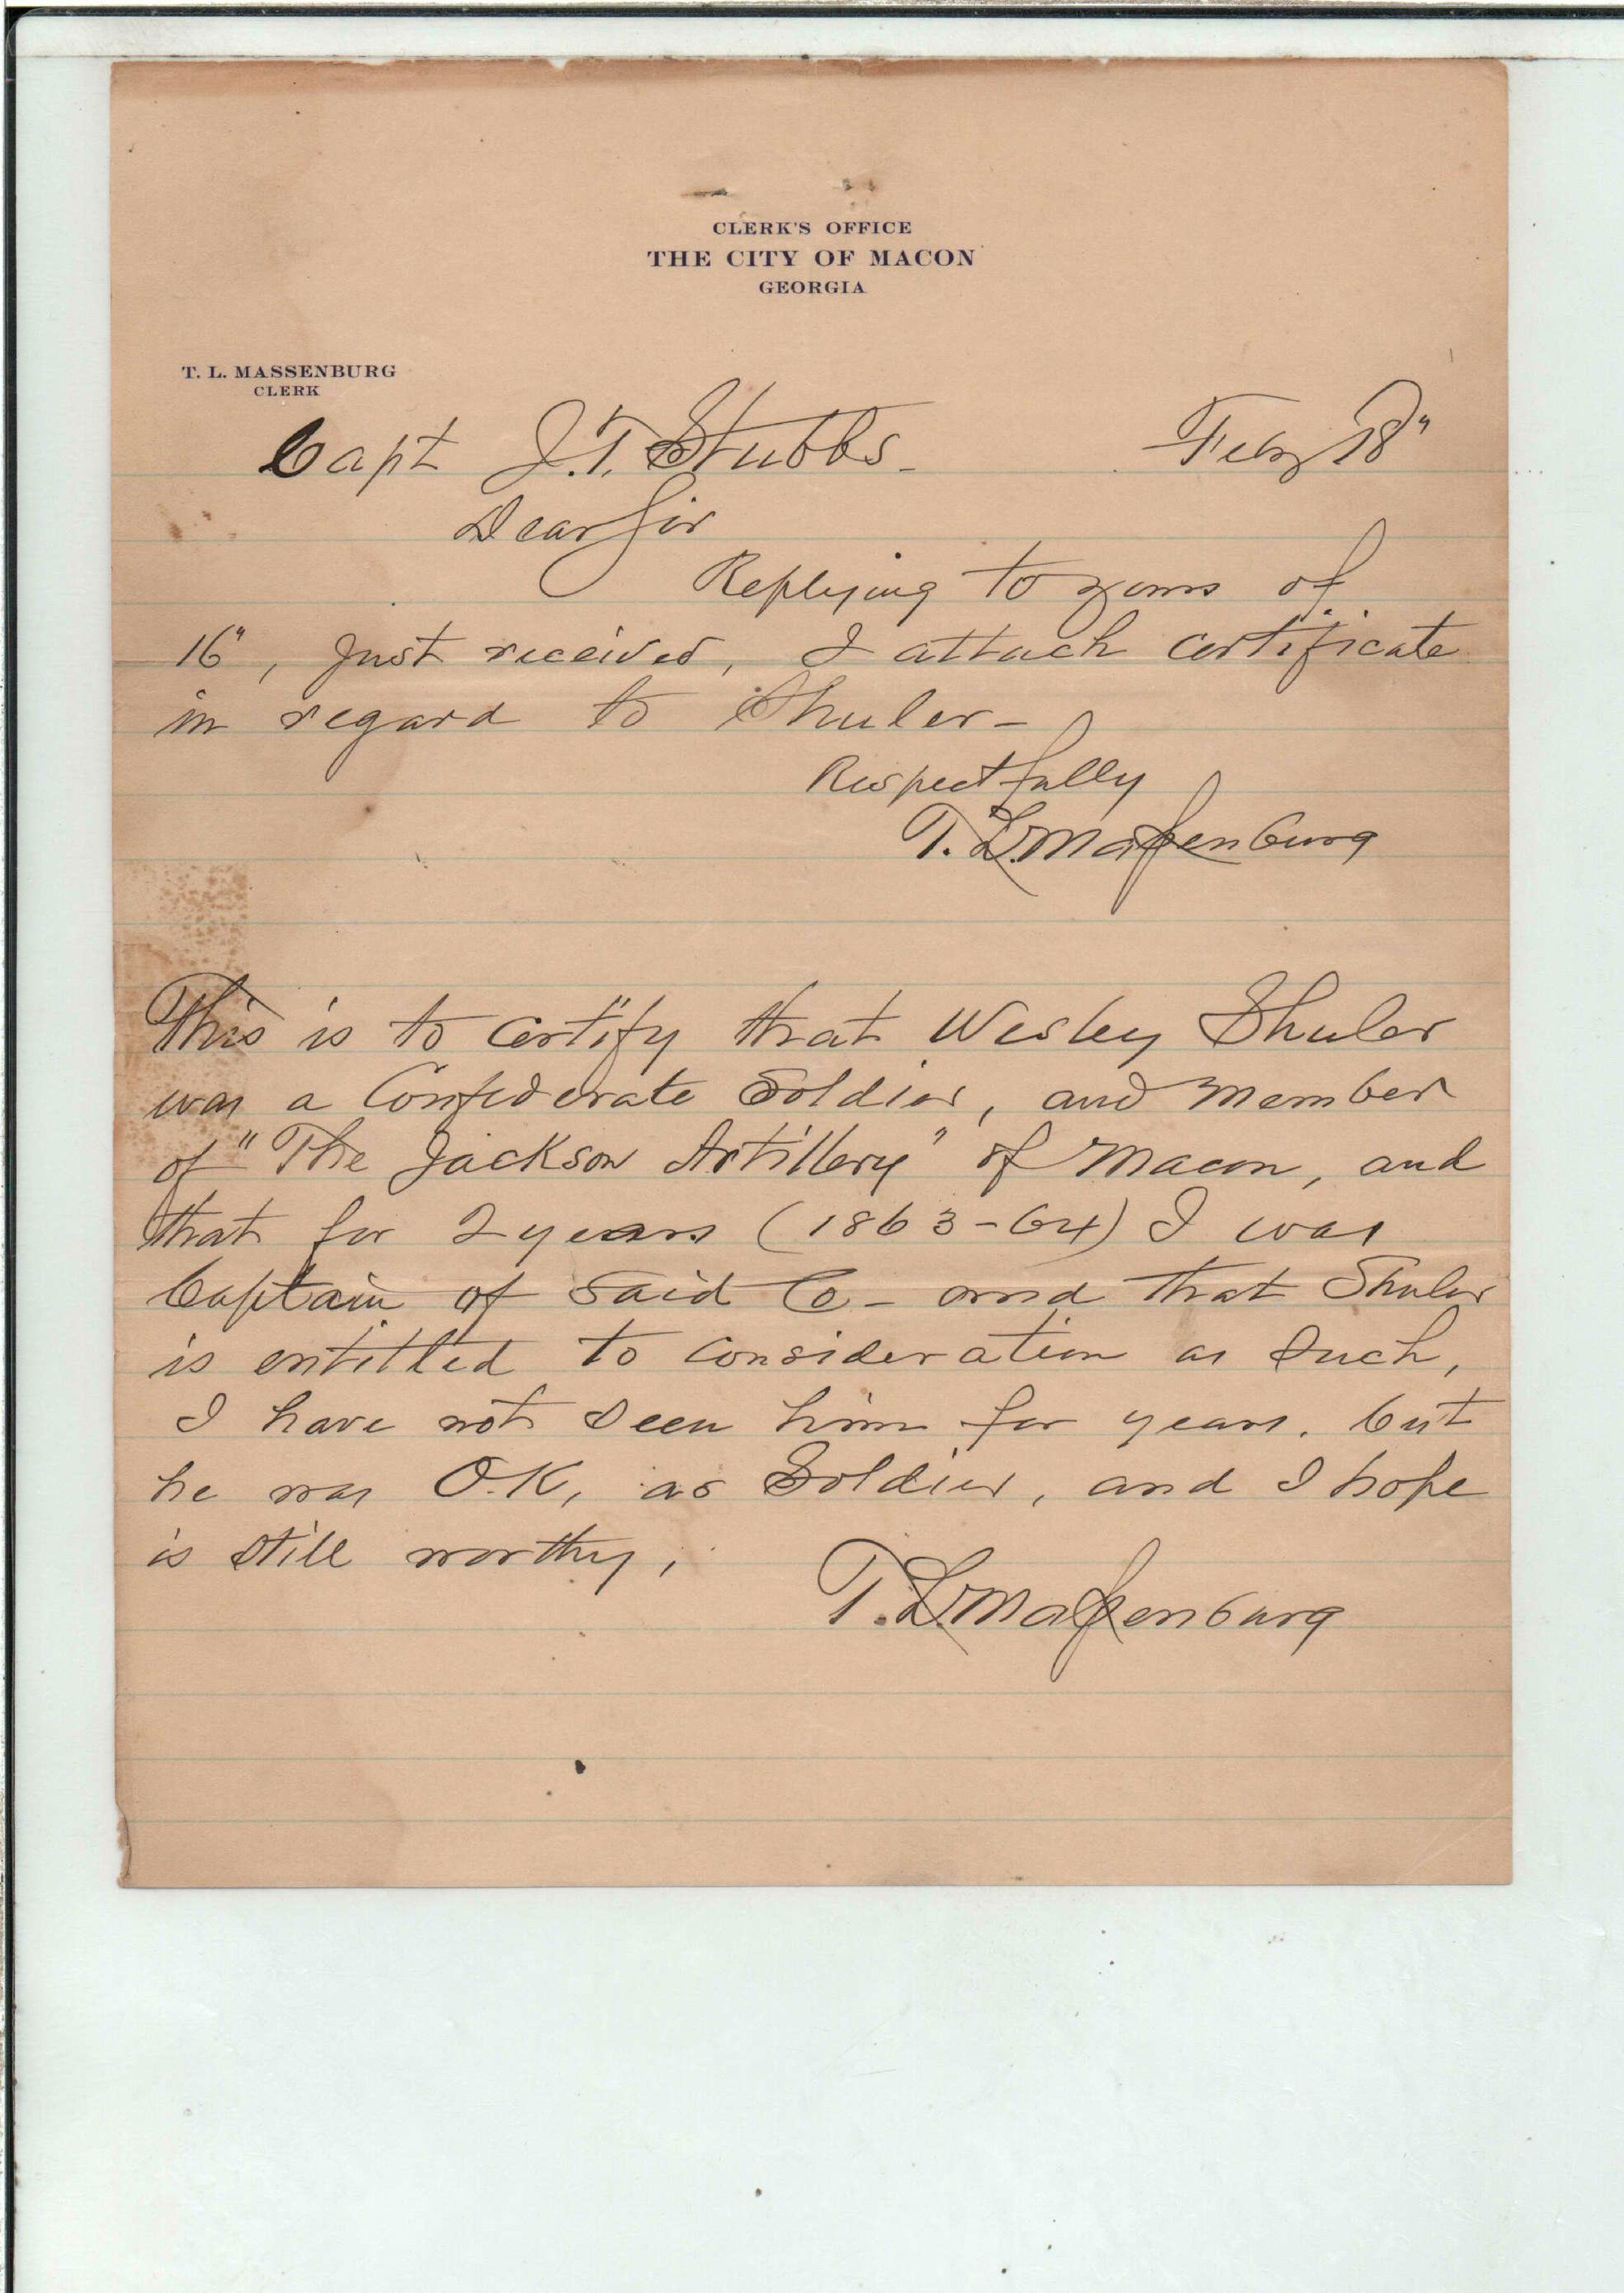 CLERK'S OFFICE
THE CITY OF MACON
GEORGIA
T. L. MASSENBURG
CLERK
Capt J. T. Stubbs - Feby 18"
Dear Sir
Replying to yours of
16", just received, I attach certificate
in regard to Shuler -
Respectfully
T. L. Massenburg
This is to certify that Wesley Shuler
was a Confederate Soldier, and member
of "The Jackson Artillery" of Macon, and
that for 2 years (1863-64) I was
Captain of said Co - and that Shuler
is entitled to consideration as such,
I have not seen him for years. but
he was O.K, as Soldier, and I hope
is still worthy,
T. L. Massenburg